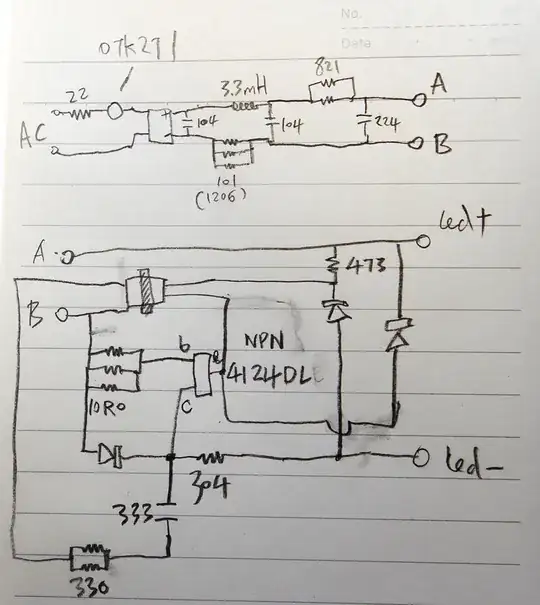 No.
Date
07K271
22
3.3mH
821
A
AC
+
104
104
224
B
101
(1206)
A
led+
473
B
b
e
NPN
4124DL
c
10R0
304
led-
333
330